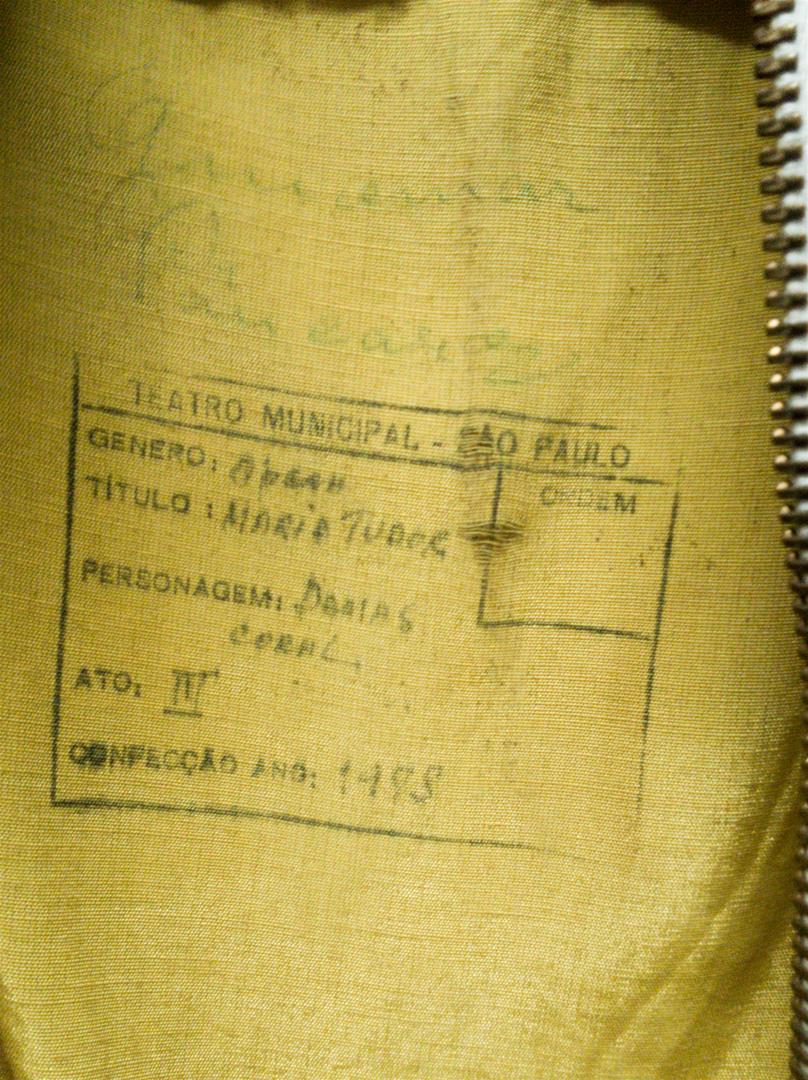 TEATRO MUNICIPAL - SÃO PAULO
GENERO: OPERA
ORDEM
TÍTULO: MARIA TUDOR
PERSONAGEM: DAMAS
CORAL
ATO: III
CONFECÇÃO ANO: